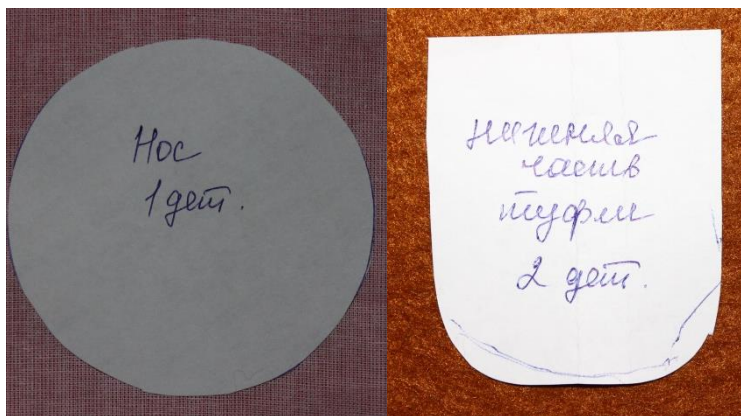 Нос
1 дет.
нижняя
часть
туфли
2 дет.